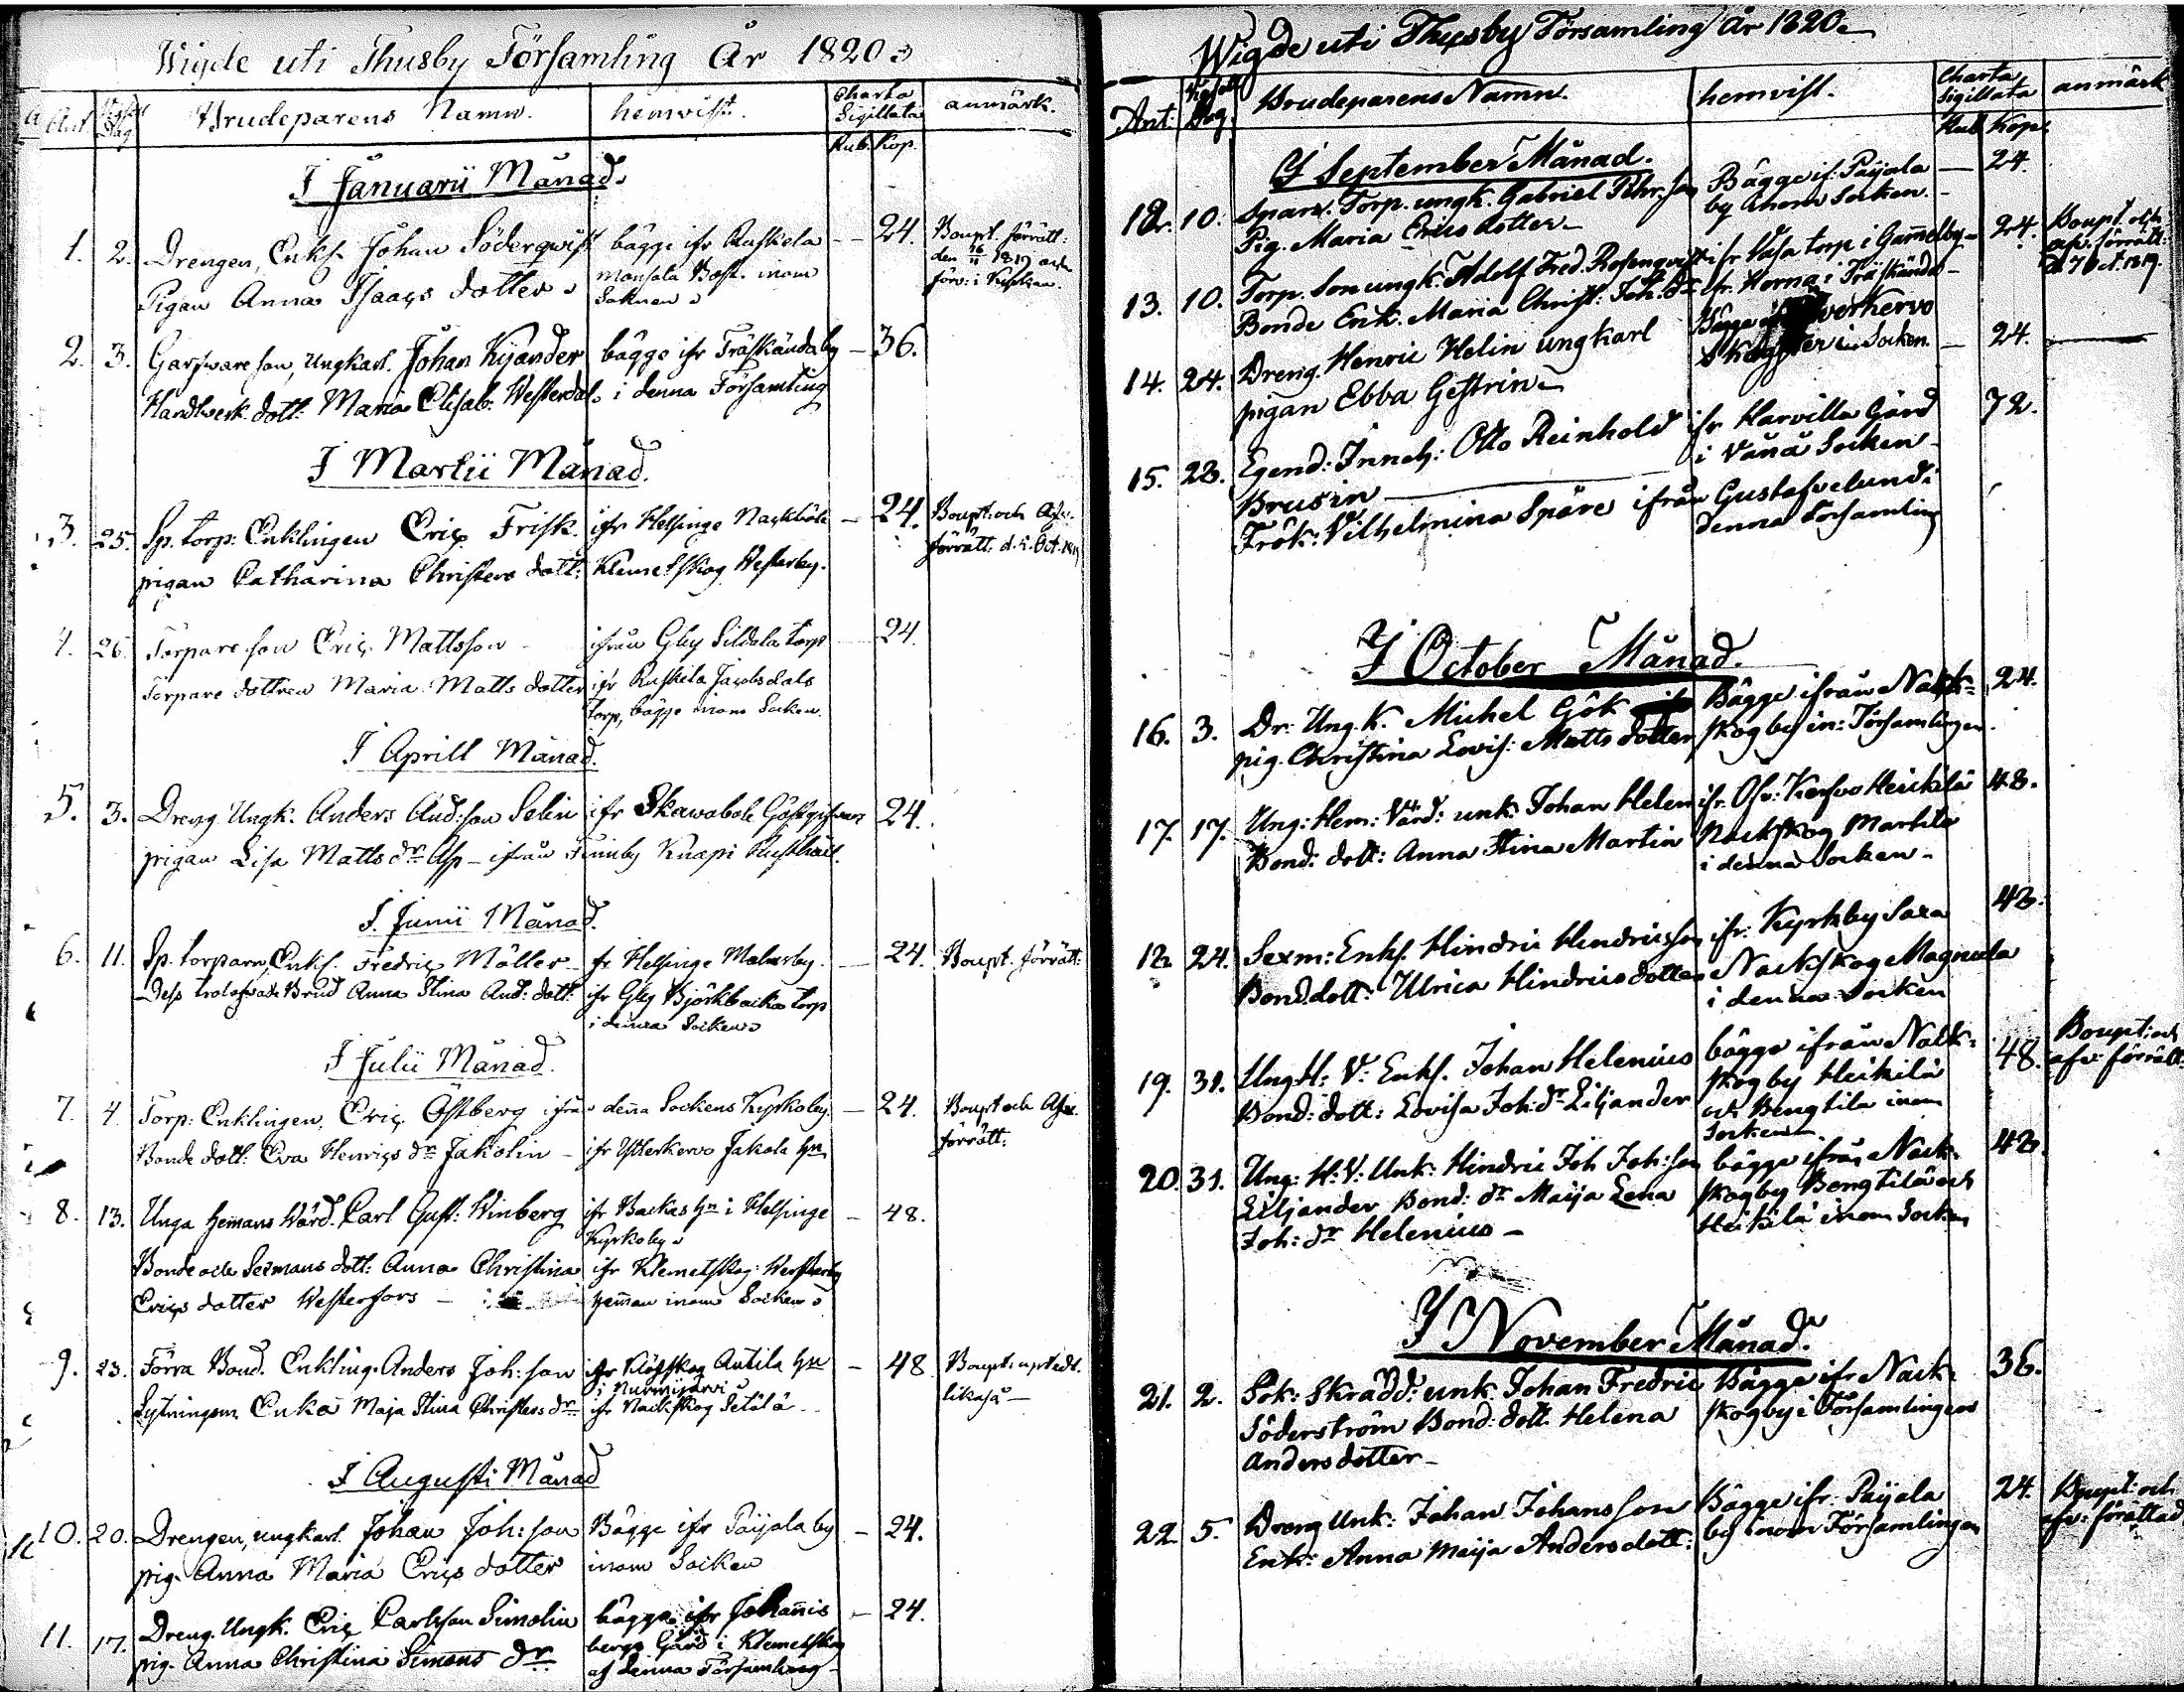 Wigde uti Thusby Församling År 1820
Ant Dag Brudeparens Namn. hemvist. Charta Sigillata anmärk.
Rub. Kop.
I Januarii Månad.
1. 2. Drengen, Enkl. Johan Söderqwist bägge ifr Ruskela — 24. Boupt. förrätt:
Pigan Anna Isaacs dotter mansala Bost. inom den 16/11 1819 och
Soknen
2. 3. Garfware son, Ungkarl. Johan Kyander bägge ifr Träskända by — 36.
Handtverk. dott: Maria Elisab: Westerdal. i denna Församling
I Martii Månad.
3. 25. Sp. torp: Enklingen Eric Frisk. ifr Helsinge Nackböle — 24. Boupt: och Afv.
pigan Catharina Christers dott: Klemetskog Westerby. förrätt. d. Oct. 1819
4. 26. Torpare son Eric Mattsson ifrån Gby Sildala torp 24.
Torpare dottren Maria Matts dotter ifr Ruskela Jacobsdals
torp, bägge inom Socken.
I Aprill Månad.
5. 3. Dreng. Ungk. Anders And:son Selin ifr Skawabole 24.
pigan Lisa Matts dr Asp — ifrån Finnby Knapi Rusthåll.
I Junii Månad.
6. 11. Sp. torparn, Enkl. Fredric Möller fr. Helsinge Malmsby. — 24. Boupt. förrätt:
Dess trolofvade Brud Anna Stina And: dott: ifr Gby Björkbacka torp
i denna Socken
I Julii Månad.
7. 4. Torp: Enklingen, Eric Östberg ifrån denna Sockens Kyrkoby. — 24. Boupt och Afv.
Bonde dott: Eva Henrics dr Jakolin — ifr Ytterkervo Jakola hn förrätt.
8. 13. Unga hemans Wärd. Carl Gust: Winberg ifr Backas hn i Helsinge — 48.
Kyrkoby
Bonde och Sexmans dott: Anna Christina ifr Klemetskog: Westerby
Erics dotter Westerfors — heman inom Socken
9. 23. Förra Bond. Enkling. Anders Joh:son ifr Klöfskog Antila hn — 48 Boupt: uprtedt.
i Nurmijärvi
Sytningsm. Enka Maja Stina Christers dr ifr Nackskog Setälä likaså —
I Augusti Månad
10. 20. Drengen, ungkarl. Johan Joh:son Bägge ifr Paijala by — 24.
pig. Anna Maria Erics dotter inom Socken
11. 17. Dreng. Ungk. Eric Carlsson Simolin bägge ifr Johannis — 24.
pig. Anna Christina Simons dr bergs Gård i Klemetskog
af denna Församling —
Wigde uti Thusby Församling År 1820
Ant: Dag. Brudeparens Namn. hemvist. Charta Sigillata anmärk
Rub. Kop.
I September Månad.
12. 10. Torp. ungk. Gabriel Pehr:son Bägge if. Paijala — 24.
Pig. Maria Erics dotter — by inom Socken. —
13. 10. Torp. Son ungk. Adolf Fred. Rosenqvist ifr Vasa torp i Gamelby — 24. Boupt. och
Bonde Enk. Maria Christ: Joh. dr fr. Horna i Träskända — afv. förrätt:
d 7 Oct. 1819.
14. 24. Dreng. Henric Helin ungkarl Bägge verkervo
pigan Ebba Gestrin — Socken. — 24.
15. 28. Egend: Inneh: Otto Reinhold ifr Harvilla Gård 72.
Brusin — i Vånå Socken —
Frök: Vilhelmina Spåre ifrån Gustafvelund i
denna Församling
I October Månad.
16. 3. Dr: Ung. K. Michel Gök Bägge ifrån Nack= 24.
pig. Christina Lovis: Matts dotter skog by in: Församlingen.
17. 17. Ung: Hem: Värd: unk: Johan Helen ifr. Ofv: Kervo Heikilä 48.
Bond: dott: Anna Stina Martin Nackskog Martila
i denna Socken —
18. 24. Sexm: Enkl. Hindric Hindricsson ifr: Kyrkby Saxa 48.
Bond. dott: Ulrica Hindrics dotter Nackskog Magnula
i denna Socken
19. 31. Ung H: V: Enkl. Johan Helenius bägge ifrån Nack= 48. Boupt: och
Bond: dott: Lovisa Joh: dr Liljander skog by Heikilä afv: förrätt:
och Bengtila inom
Socken.
20. 31. Ung: H: V: Unk: Hindric Joh Joh:son bägge ifrån Nack- 48.
Liljander Bond: dr Maija Lena skogby Bengtilä och
Joh: dr Helenius — Heikilä inom Socken
I November Månad.
21. 2. Sok: Skrädd: unk. Johan Fredric Bägge ifr Nack- 36.
Söderström Bond: dott. Helena skogby i Församlingen
Anders dotter —
22. 5. Dreng Unk: Johan Johansson Bägge ifr: Paijala 24. Boupt: och
Enk: Anna Maija Anders dott: by inom Församlingen afv: förättad